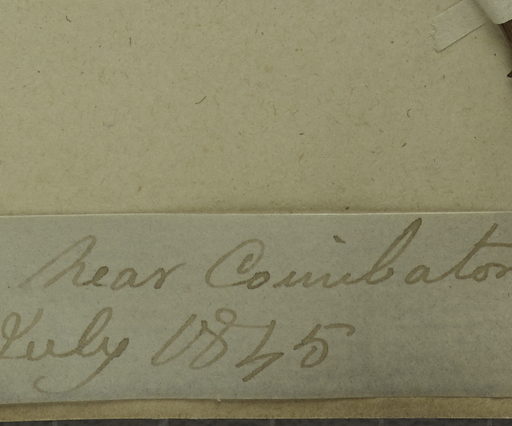 near Coimbator
July 1845